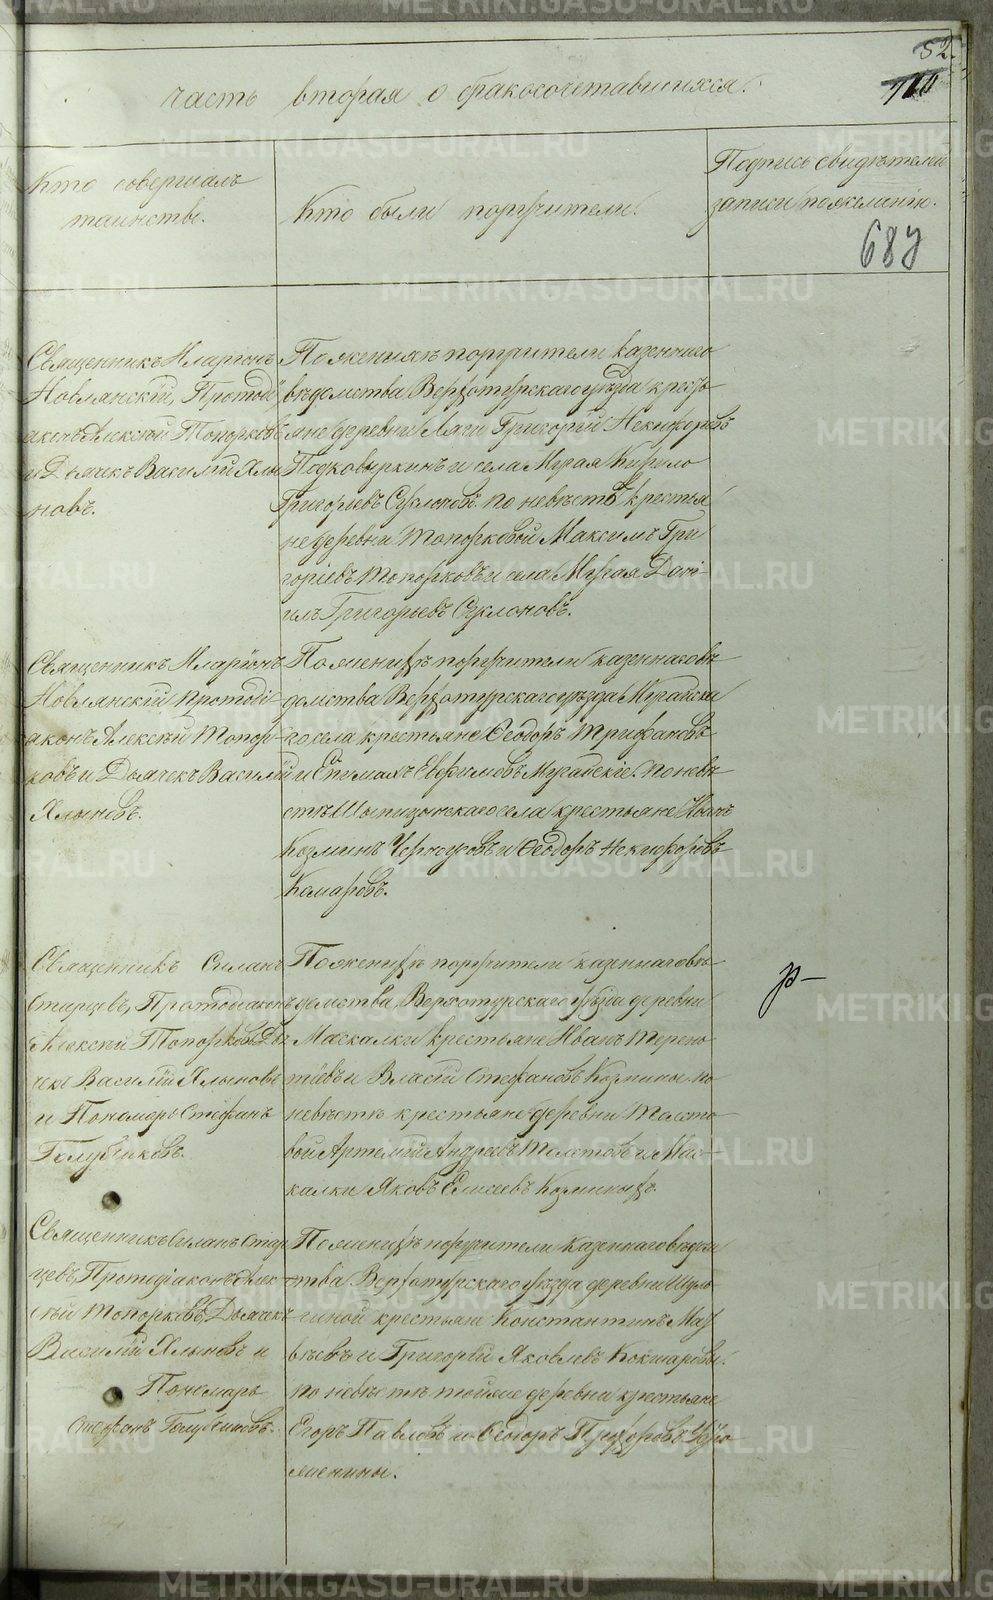 52.
часть вторая о бракосочетавшихся.
Кто совершалъ
таинство.
Кто были поручители.
Подпись свидѣтелей
записи по желанію.
687
Священникъ Иларіонъ
Новлянскій, Протоді
аконъ Алексѣй Топорковъ
и Дьячекъ Василій Хлы
новъ.
По женихѣ поручители казеннаго
вѣдомства Верхотурскаго уѣзда кресть
яне деревни Ляги Григорій Никифоровъ
Подковыркинъ и села Мугая Кирило
Григорьевъ Суклоновъ. по невѣстѣ крестья
не деревни Топорковой Максимъ Гри
горіевъ Топорковъ и села Мугая Дані-
илъ Григорьевъ Суклоновъ.
Священникъ Иларіонъ
Новлянскій Протоді-
аконъ Алексѣй Топор-
ковъ и Дьячекъ Василій
Хлыновъ.
По женихѣ поручители казеннаго вѣ
домства Верхотурскаго уѣзда Мугайска
го села крестьяне Ѳеодоръ Трифановъ
и Епимахъ Евфимовъ Мугайскіе. По невѣ
стѣ Шыпицынскаго села крестьяне Иванъ
Козминъ и Ѳеодоръ Никифоровъ
Комаровъ.
Священникъ Силанъ
Старцевъ, Протодіаконъ
Алексѣй Топорковъ, Дья
чекъ Василій Хлыновъ
и Пономарь Стефанъ
Голубчиковъ.
По женихѣ поручители казеннаго вѣ
домства, Верхотурскаго уѣзда деревни
Маскалки крестьяне Иванъ Терен
тіевъ и Власій Стефановъ Козмины. по
невѣстѣ крестьяне деревни Толсто
вой Артемій Андреевъ Толстовъ и Мас-
калки Яковъ Елисеевъ Козминыхъ.
Священникъ Силанъ Стар
цевъ, Протодіаконъ Алек
сѣй Топорковъ, Дьячекъ
Василій Хлыновъ и
Пономарь
Стефанъ Голубчиковъ.
По женихѣ поручители казеннаго вѣдом
ства Верхотурскаго уѣзда деревни Шуль
гиной крестьяне Константинъ Мат
вѣевъ и Григорій Яковлевъ Кокшаровы.
по невѣстѣ тойже деревни крестьяне
Егоръ Павловъ и Ѳеодоръ
METRIKI.GASO-URAL.RU